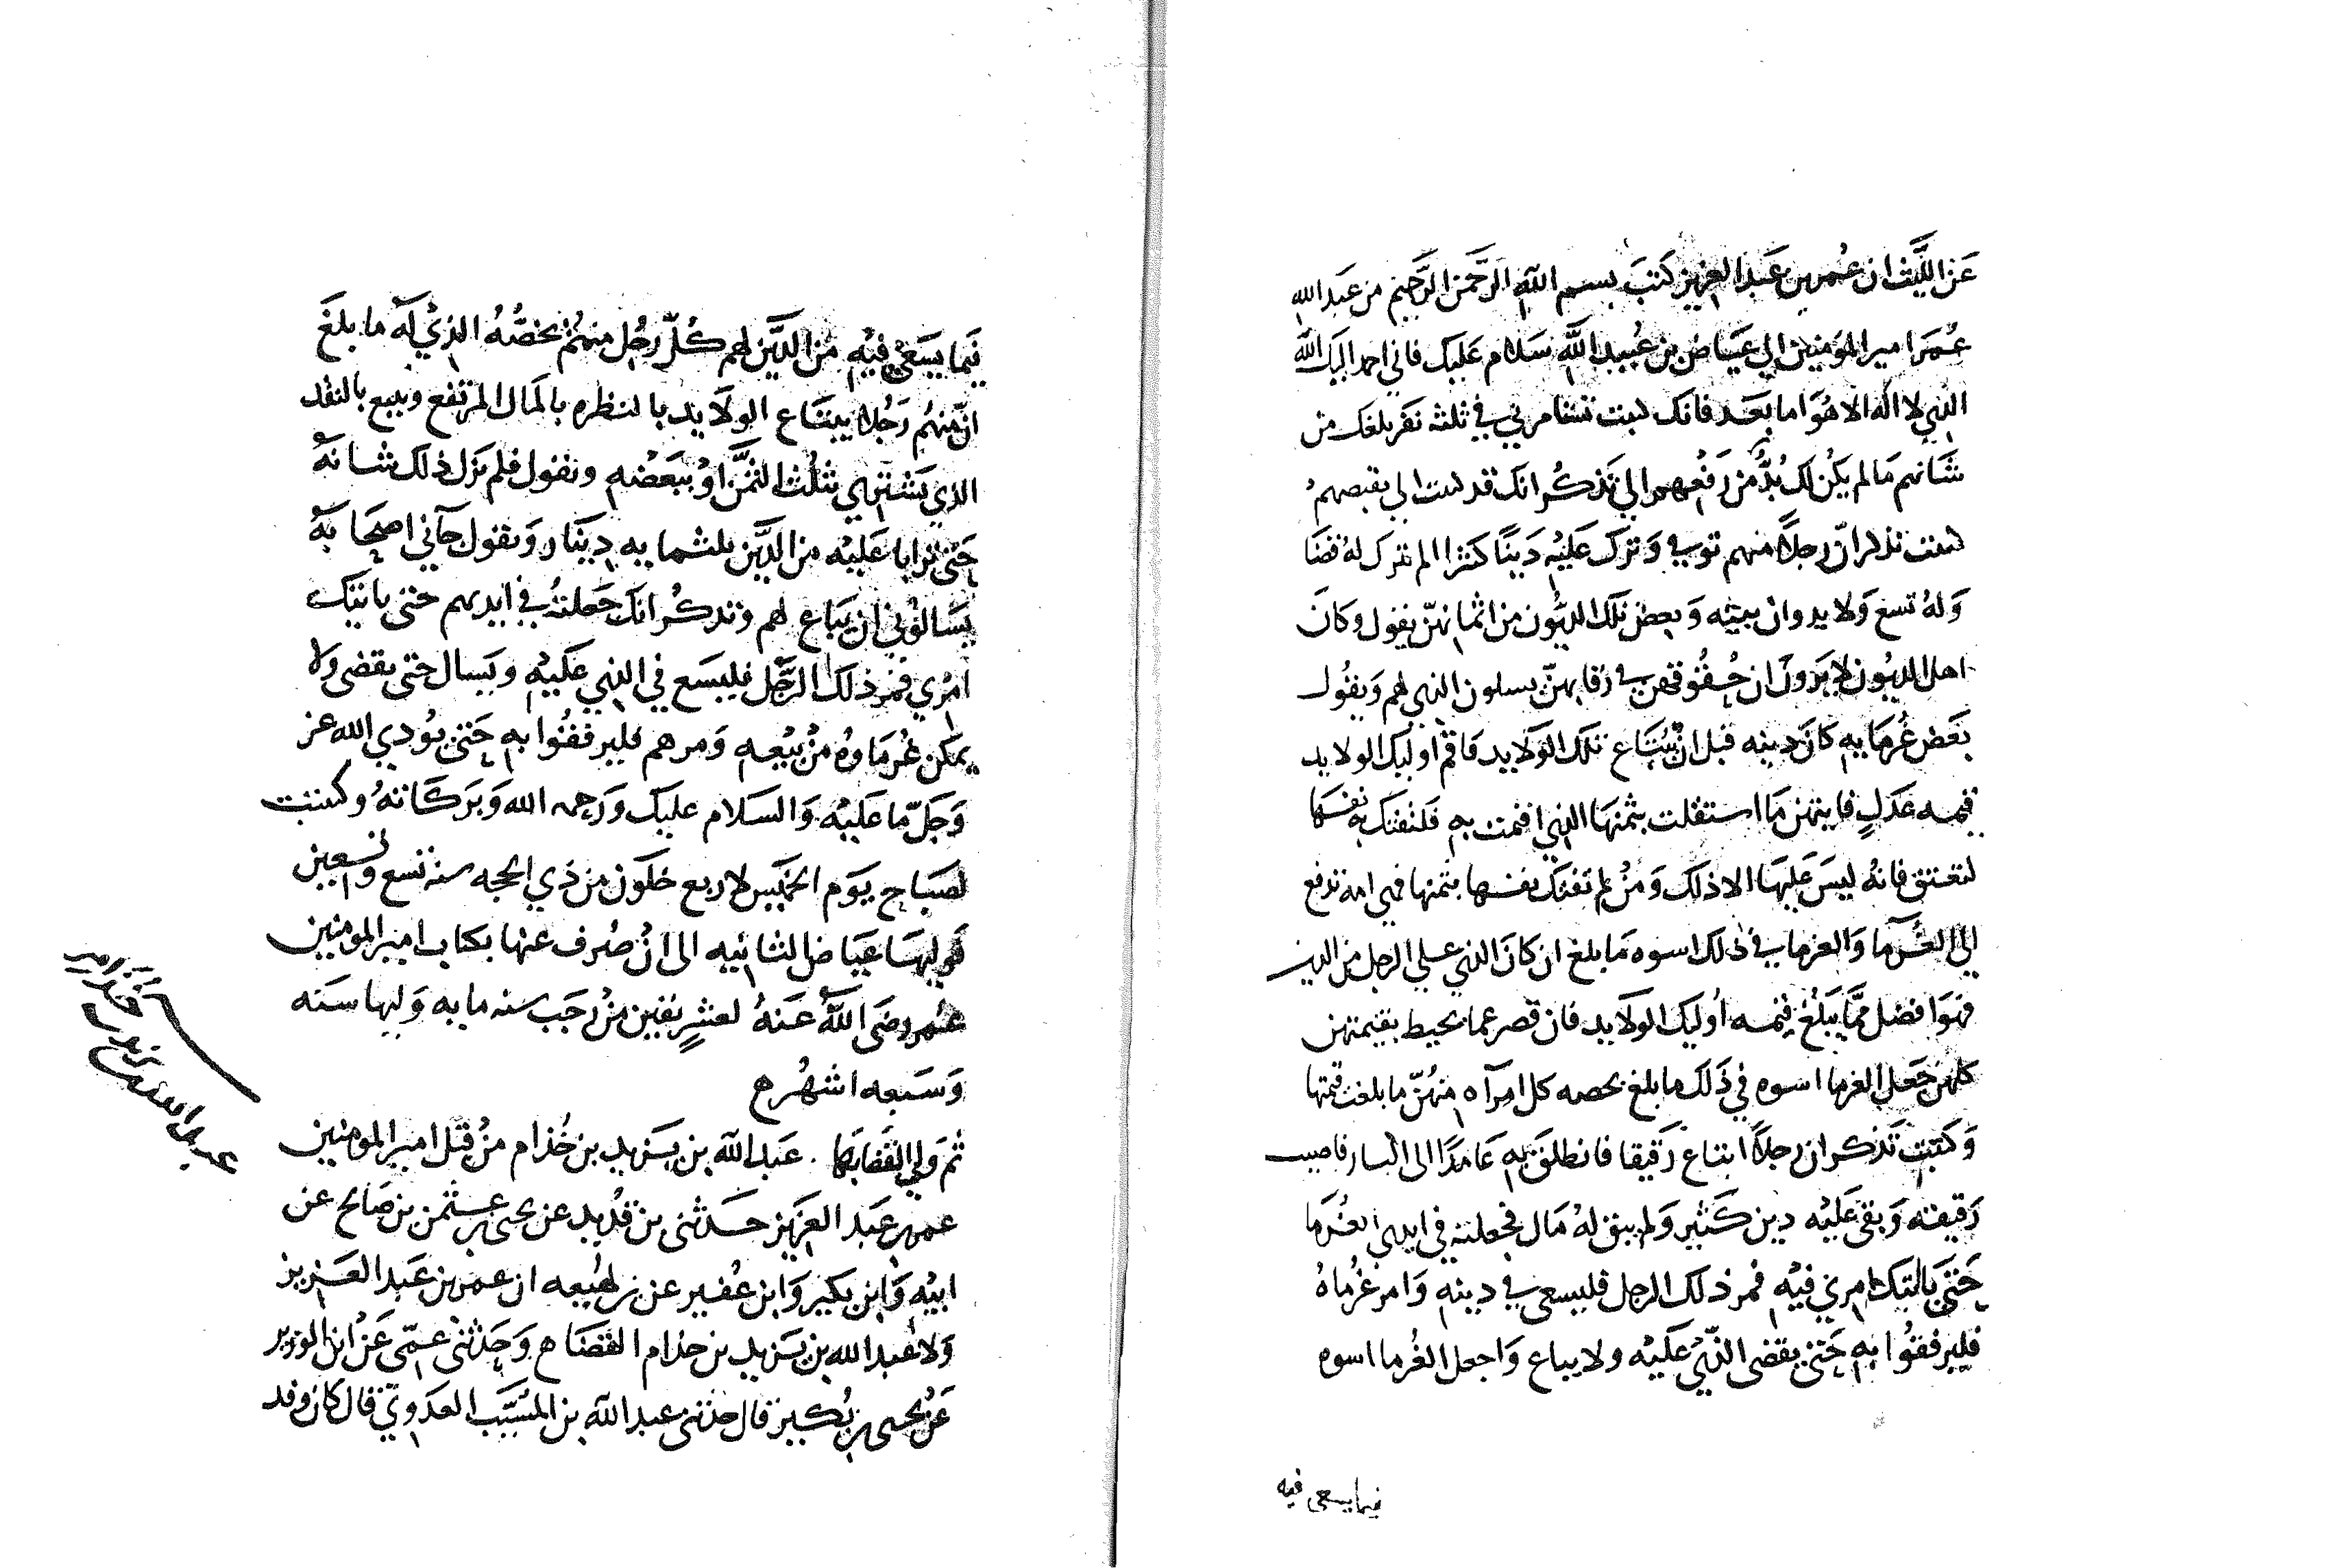 عَن اللَّيث ان عُمر بن عَبد العزيز كتبَ بسم اللّه الرَّحمن الرَّحيم من عَبد الله
عُمَر امير المؤمنين الي عيَاض بن عُبيد اللَّه سَلام عَليك فاني احمد اليك اللّه
الذي لا اله الا هُوَ اما بَعَد فانك كتبت تستامرني في ثلثة نفر بلغك من
شَانهم مَا لم يَكُن لك بُدّ من رَفعُهم الي تَذكُر انك قد كتبت الي بقصصهم
كتبت تذكر ان رجلاً منهم توفي وَترك عَليه دَينًا كثيرا لم يترك له قضَا
وَلهُ تسع وَلايد وان بيته وَبعض تلك الديُون من اثمانهنّ يقول وكانَ
اهل الديُون لا يَرون ان حُقوقهن في رقابهنّ يسلون الذي لهم وَيقُول
بَعَض غُرمَايه كانَ دينه قبل ان يُبتَاع تلك الوَلايد فاقم اوليك الولايد
قيمه عَدلٍ فايتهن مَا استقلت بثمنهَا الذي اقمت به فلتفتك به نفسَها
لتعتق فانهُ ليسَ عَليهَا الا ذلك وَمَنُ لم تفتك نفسها بثمنها فهي امة تدفع
إلى الغُرما وَالغرما في ذلك اسوه مَا بلغ ان كانَ الذي علي الرجل من الدين
فهوَ افضل ممَّا يَبلُغ قيمه أوليك الولايد فان قصر عما يحيط بقيمتهن
كلهن جَعل الغرما اسوه في ذَلك ما بلغ بحصه كل امرآه منهُنّ ما بلغت قيمتها
وَكتبت تَذكر ان رجلاً ابتاع رَقيقا فانطلقَ به عَامدًا الى اليسار فاصيب
رَقيقه وَبقى عَليه دين كَثير وَلم يبق لهُ مَال فجعلته في ايدي الغُرَما
حَتى يَاتيك امري فيه فمر ذلك الرجل فليسعى في دينه وَامر غُرماهُ
فليرفقُوا به حَتى يقضى الذّي عَليه ولا يباع وَاجعل الغُرما اسوه
فيما يسعى فيه
فيما يسَعىُ فيُه من الدَّين لهم كُلّ رجُل منهُمُ بحصُّهُ الذيُ لَه ما بلغَ
ان منهُم رَجُلا يبتَاع الولايد بالنظره بالمَال المرتفع ويبيع بالنقد
الذي يَشتري بثلُث الثمَن اوُ ببَعَضه وتقول فلم يَزل ذلك شانهُ
حَتى تَرايا عَليُه من الدَّين ثلثمايه دِينار وَتقول جآني اصحَابهُ
يسَالوُني ان يَبَاع لهم وتذكُر انك جَعلتهُ في ايديهم حتى ياتيك
امُري فمر ذلك الرَّجُل فليسَع في الذي عَليُه وَيسال حتى يقضى ولا
يمَكن غُرمَاوهُ منُ بيُعه وَمرهم فليرفقُوا به حَتى يُودي الله عز
وَجَلّ ما عَليُه وَالسَلام عليك وَرحمه الله وَبَركَاتهُ وكتبت
لصَبَاح يَوَم الخمَيس لاربع خلَون من ذي الحجه سنه تسع وتسعين
فَوَليهَا عيَاض الثانيه الى ان صُرف عنها بكتاب امير المومنين
عُمر رضَى اللَّهُ عَنهُ لعشرٍ بقين منُ رَجَب سنه مايه وَليها سَنه
وَسَبعه اشهُر ح
ثمَ وَلي القضَا بهَا عَبد اللّه بن يَزيد بن خُذام منُ قبَل امير المومنين
عمر بن عَبد العزيز حَدثنى بن قدُيد عن يحيى بن عثمن بن صَالح عن
ابيُه وَابن بكير وَابن عُفير عن بن لهيُعه ان عمر بن عَبد العَزيز
وَلا عبد الله بن يَزيد بن خذام القضَا ح وَحَدثني عمّي عَن ابن الوزير
عَنُ يحيى بن بُكير قال حدثنى عبد اللّه بن المسَيَّب العدَويّ قال كان وفد
عبد الله بن يزيد بن خذامر